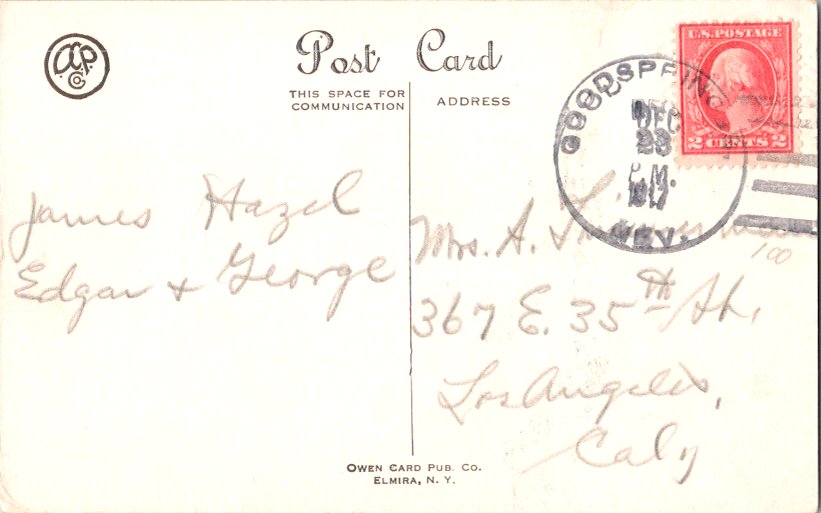 OCP Co.
Post Card
THIS SPACE FOR
COMMUNICATION
ADDRESS
U.S. POSTAGE
2 CENTS 2
GOODSPRINGS
DEC
23
P.M.
1917
NEV.
James Hazel
Edgar & George
Mrs. A.
367 E. 35th St.
Los Angeles,
Caly
100
OWEN CARD PUB. CO.
ELMIRA, N. Y.